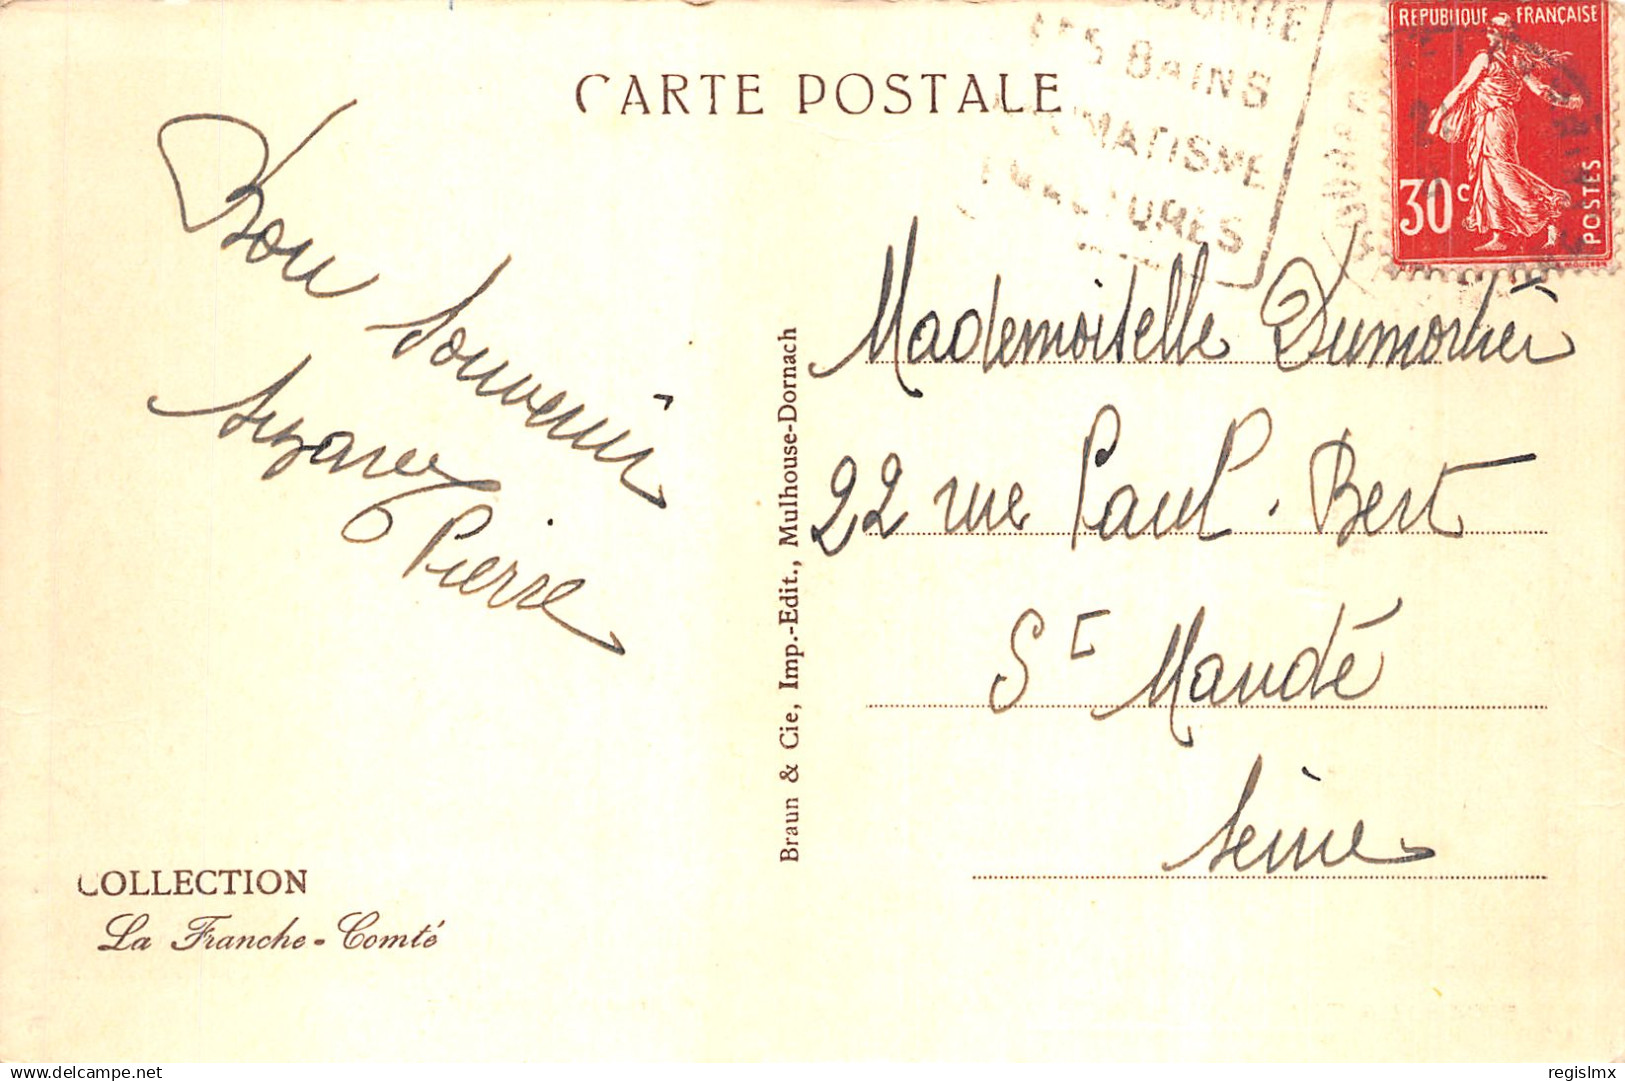 CARTE POSTALE
LES BAINS
RÉPUBLIQUE FRANÇAISE
30c
POSTES
Bon souvenir
Suzanne
Pierre
Mademoiselle Dumortier
22 rue Paul-Bert
St Mandé
Seine
Braun & Cie, Imp.-Edit., Mulhouse-Dornach
COLLECTION
La Franche-Comté
delcampe.net
regislmx